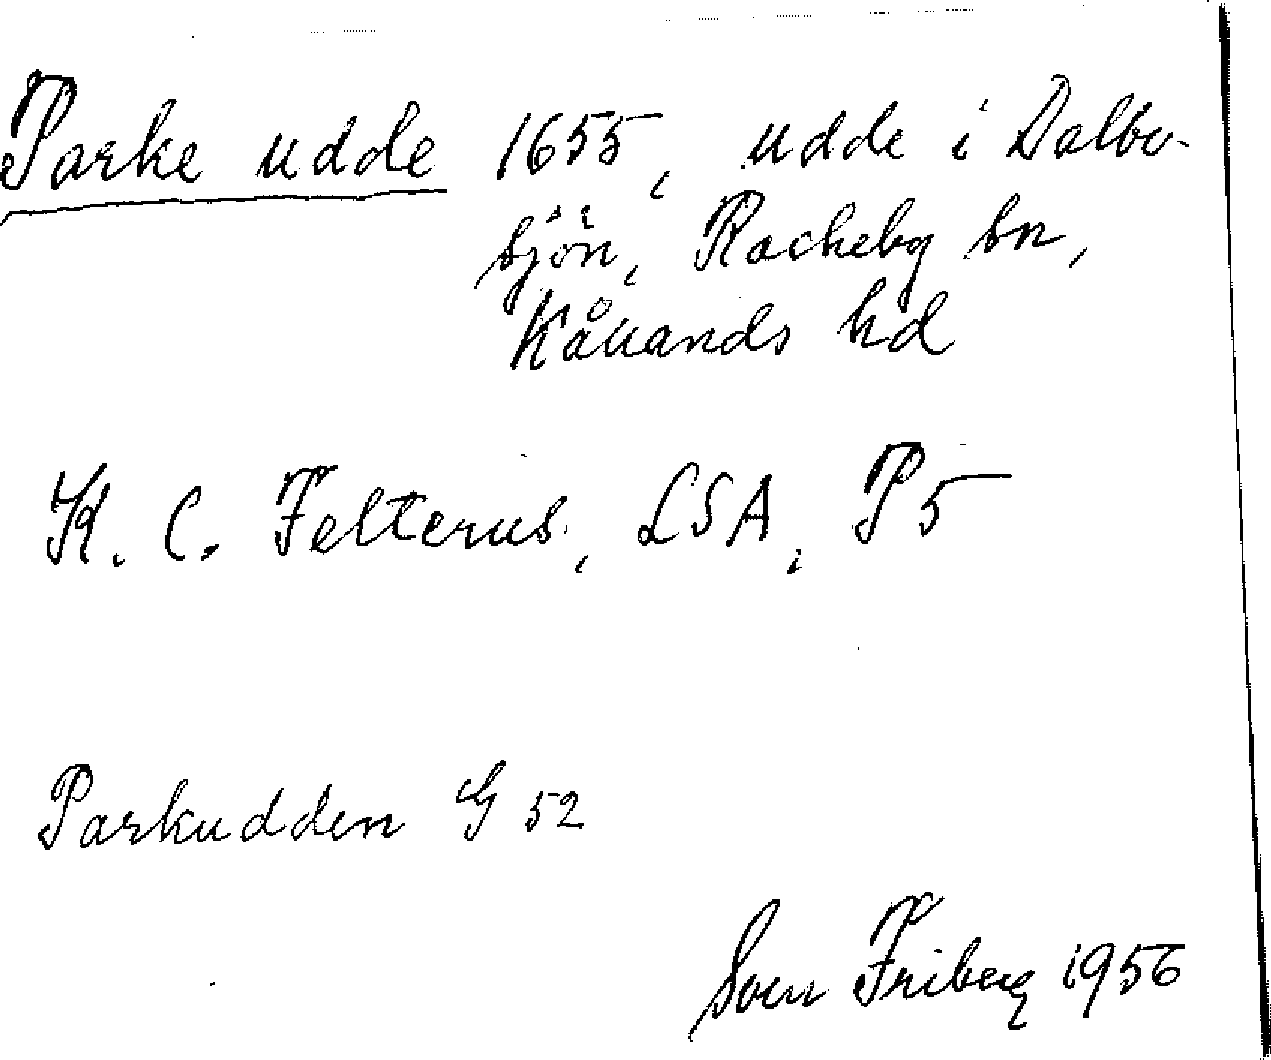 Parke udde 1655, udde i Dalbo-
sjön, Rackeby sn,
Kållands hd
K. C. Felterus, LSA, P 5
Parkudden G 52
Sven Friberg 1956